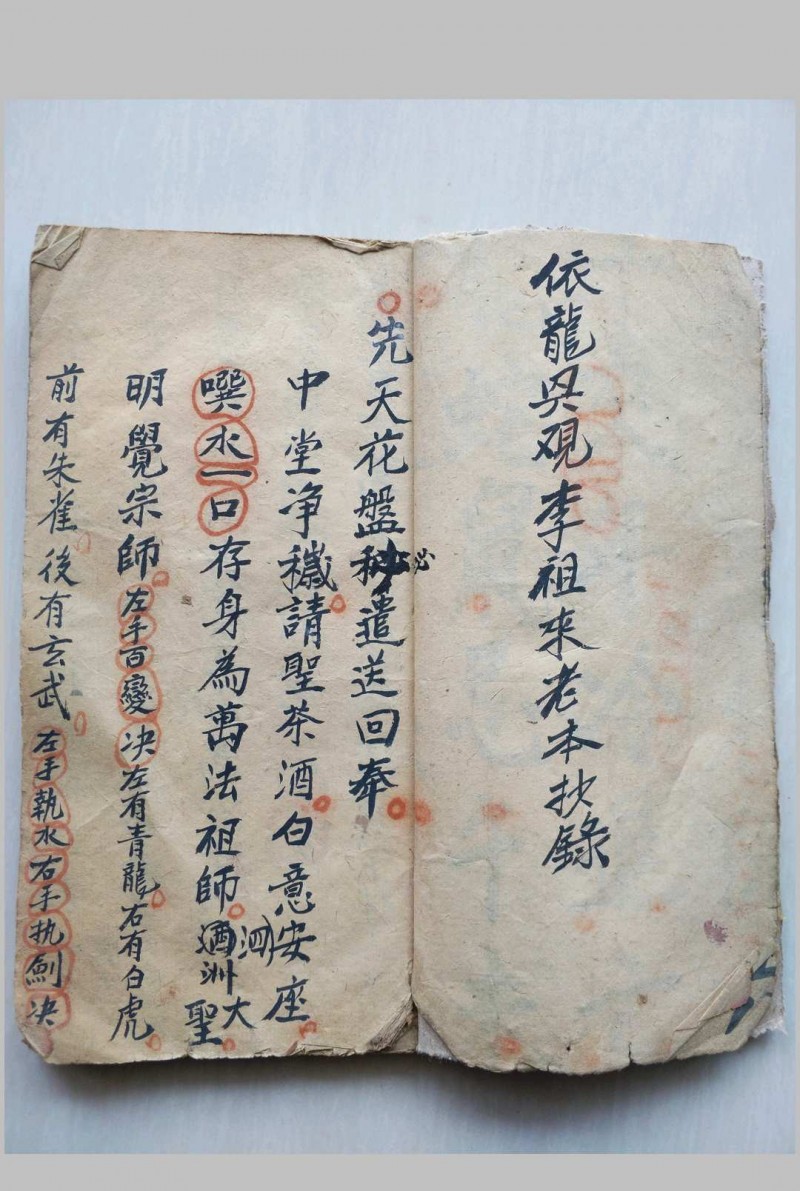 依龍吳观李祖來老本抄錄
先天花盤秘遣送回奉
中堂净穢請聖茶酒白意安座
噀水一口存身為萬法祖師泗洲大聖
明覺宗師左千百變决左有青龍右有白虎
前有朱雀後有玄武左手執水右手执劍决